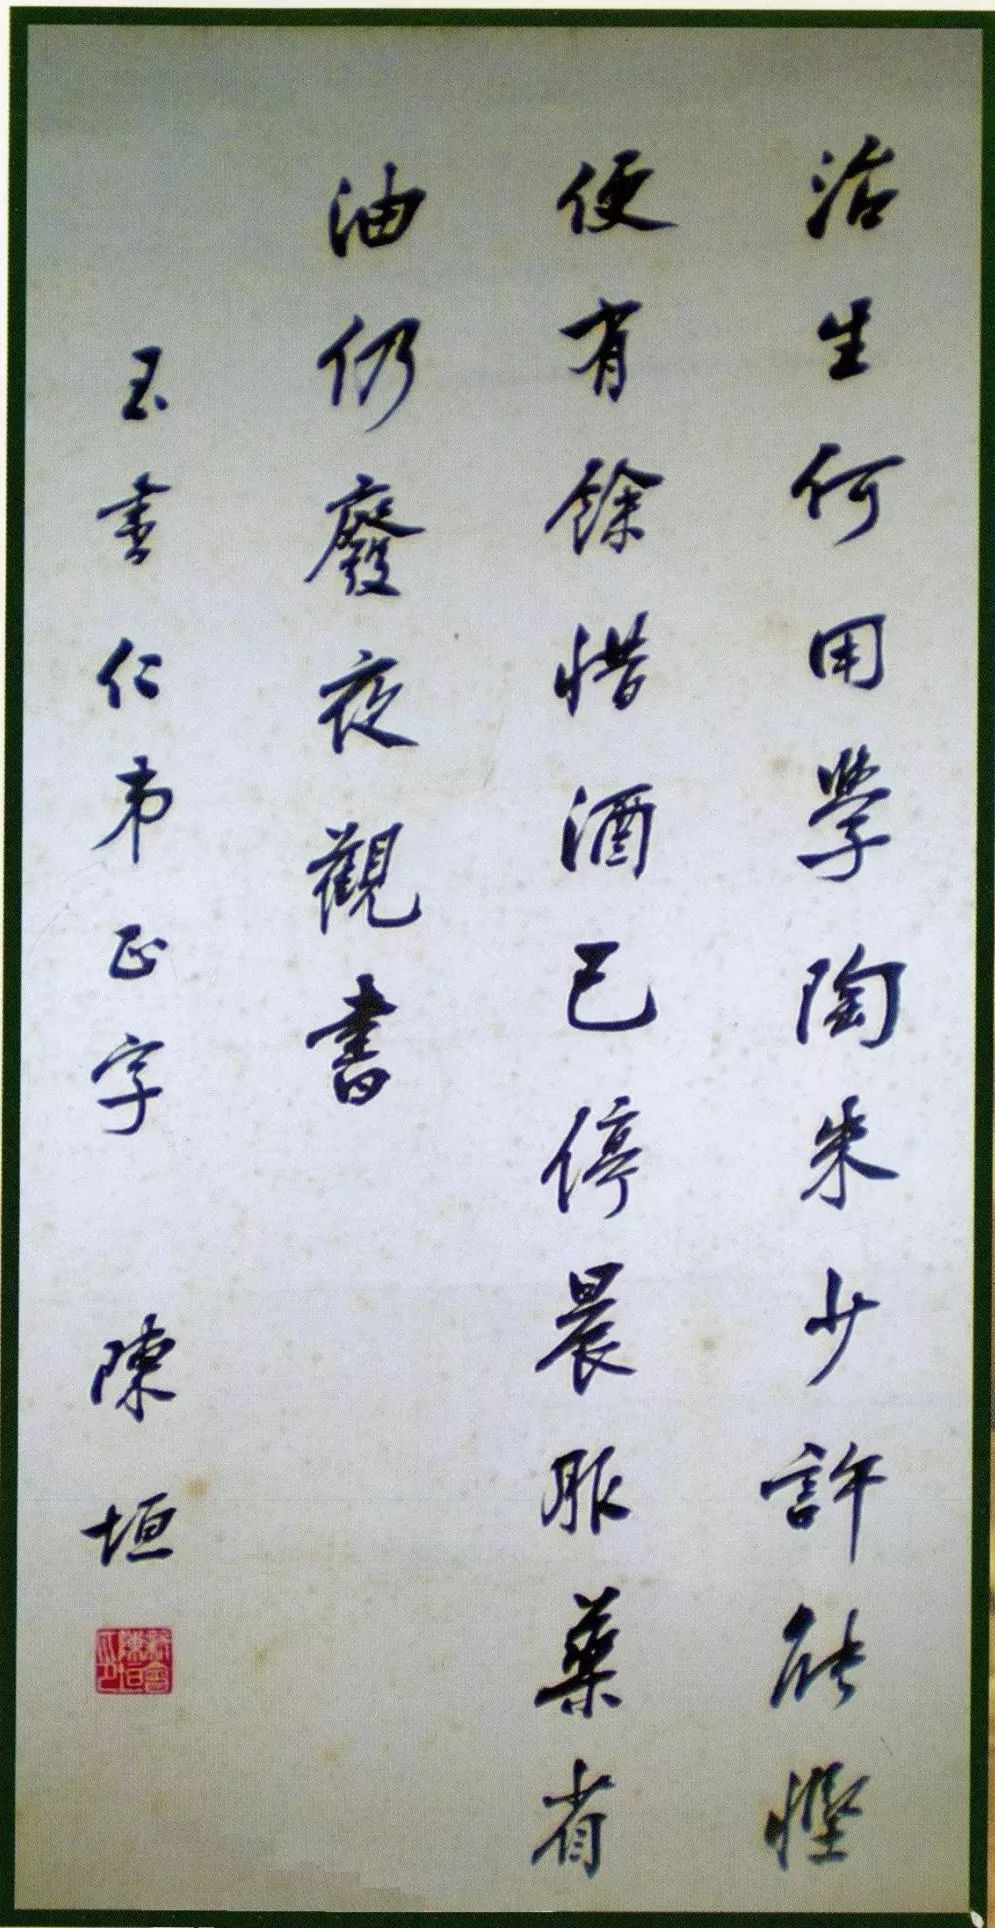 治生何用學陶朱少許能慳
便有餘惜酒已停晨服藥省
油仍廢夜觀書
玉書仁弟正字 陳垣
新會陳垣印